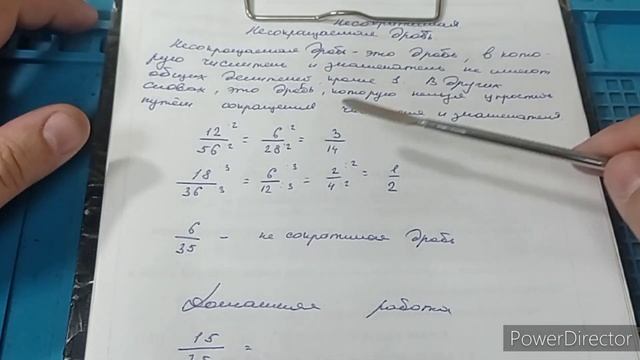 Несократимая
Несокращаемая дробь
Несокращаемая дробь - это дробь, в кото-
рую числитель и знаменатель не имеют
общих делителей, кроме 1. В других
словах, это дробь, которую нельзя упростить
путём сокращения и знаменателя
12/56 :2 :2 = 6/28 :2 :2 = 3/14
18/36 :3 :3 = 6/12 :3 :3 = 2/4 :2 :2 = 1/2
6/35 - не сократимая дробь
Домашняя работа
15/35 =
PowerDirector